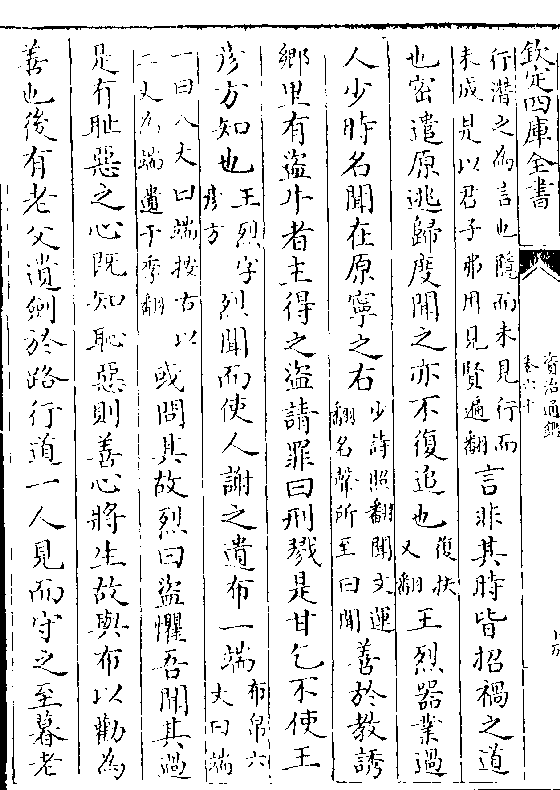 欽定四庫全書
資治通鑑
卷六十
行潛之為言也隱而未見行而
未成是以君子弗用見賢遍翻
言非其時皆招禍之道
也密遣原逃歸度聞之亦不復追也
復扶
又翻
王烈器業過
人少時名聞在原寧之右
少詩照翻聞文運
翻名聲所至曰聞
善於教誘
鄉里有盜牛者主得之盜請罪曰刑戮是甘乞不使王
彥方知也
王烈字
彥方
烈聞而使人謝之遺布一端
布帛六
丈曰端
一曰八丈曰端按古以
二丈為端遺于季翻
或問其故烈曰盜懼吾聞其過
是有恥惡之心既知恥惡則善心將生故與布以勸為
善也後有老父遺劍於路行道一人見而守之至暮老